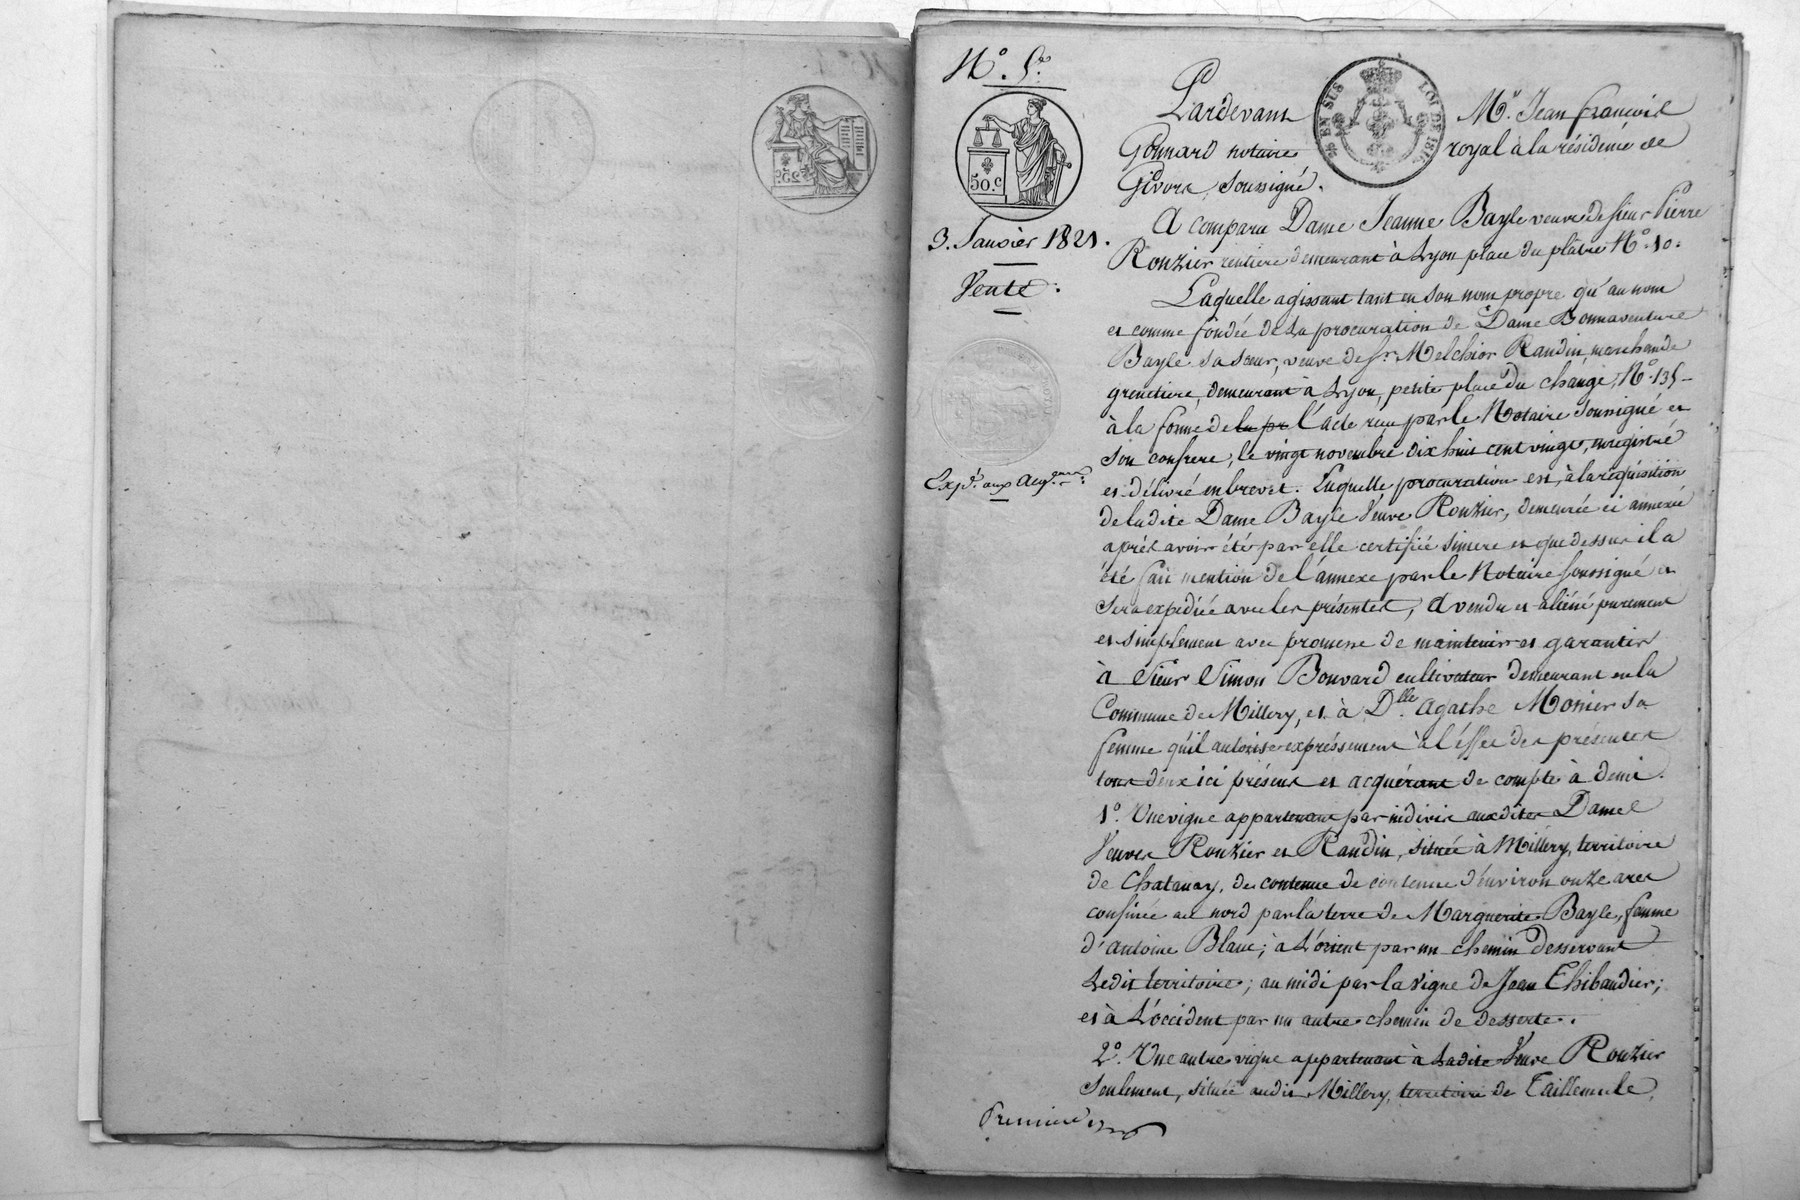 N.° 5.e
50.c
3. Janvier 1821.
Vente.
Expé. aux acqs.
EN SUS LOI DE 1816
Pardevant Me. Jean françois
Gonnard notaire royal à la résidence de
Givors soussigné.
A comparu Dame Jeanne Bayle veuve de sieur Pierre
Ronzier rentiere demeurant à Lyon place du plâtre N.° 10.
Laquelle agissant tant en son nom propre qu'au nom
et comme fondée de la procuration de Dame Bonnaventure
Bayle sa sœur, veuve de sr. Melchior Randin, marchande
grenetiere, demeurant à Lyon, petite place du change, N.° 135
à la forme de la pr l'acte reçu par le Notaire soussigné et
son confrere, le vingt novembre dix huit cent vingt, enregistré
et délivré en brevet. Laquelle procuration est, à la réquisition
de ladite Dame Bayle Veuve Ronzier, demeurée ci annexée
après avoir été par elle certifiée sincere et que dessus il a
été fait mention de l'annexe par le Notaire soussigné et
sera expédiée avec les présentes, A vendu et aliéné purement
et simplement avec promesse de maintenir et garantir
à Sieur Simon Bouvard cultivateur demeurant en la
Commune de Millery, et à Dlle. Agathe Monier sa
femme qu'il autorise expréssement à l'effet des présentes
tous deux ici présens et acquérant de compte à demi.
1.° Une vigne appartenant par indivis auxdites Dames
Veuves Ronzier et Randin, située à Millery, territoire
de Chatanay, de contenue de contenue d'environ onze ares
confinée au nord par la terre de Marguerite Bayle, femme
d'antoine Blanc; à L'orient par un chemin desservant
Ledit territoire; au midi par la vigne de Jean Thibaudier;
et à L'occident par un autre chemin de desserte.
2.° Une autre vigne appartenant à Ladite Veuve Ronzier
seulement, située audit Millery, territoire de Taillemule,
Premiere